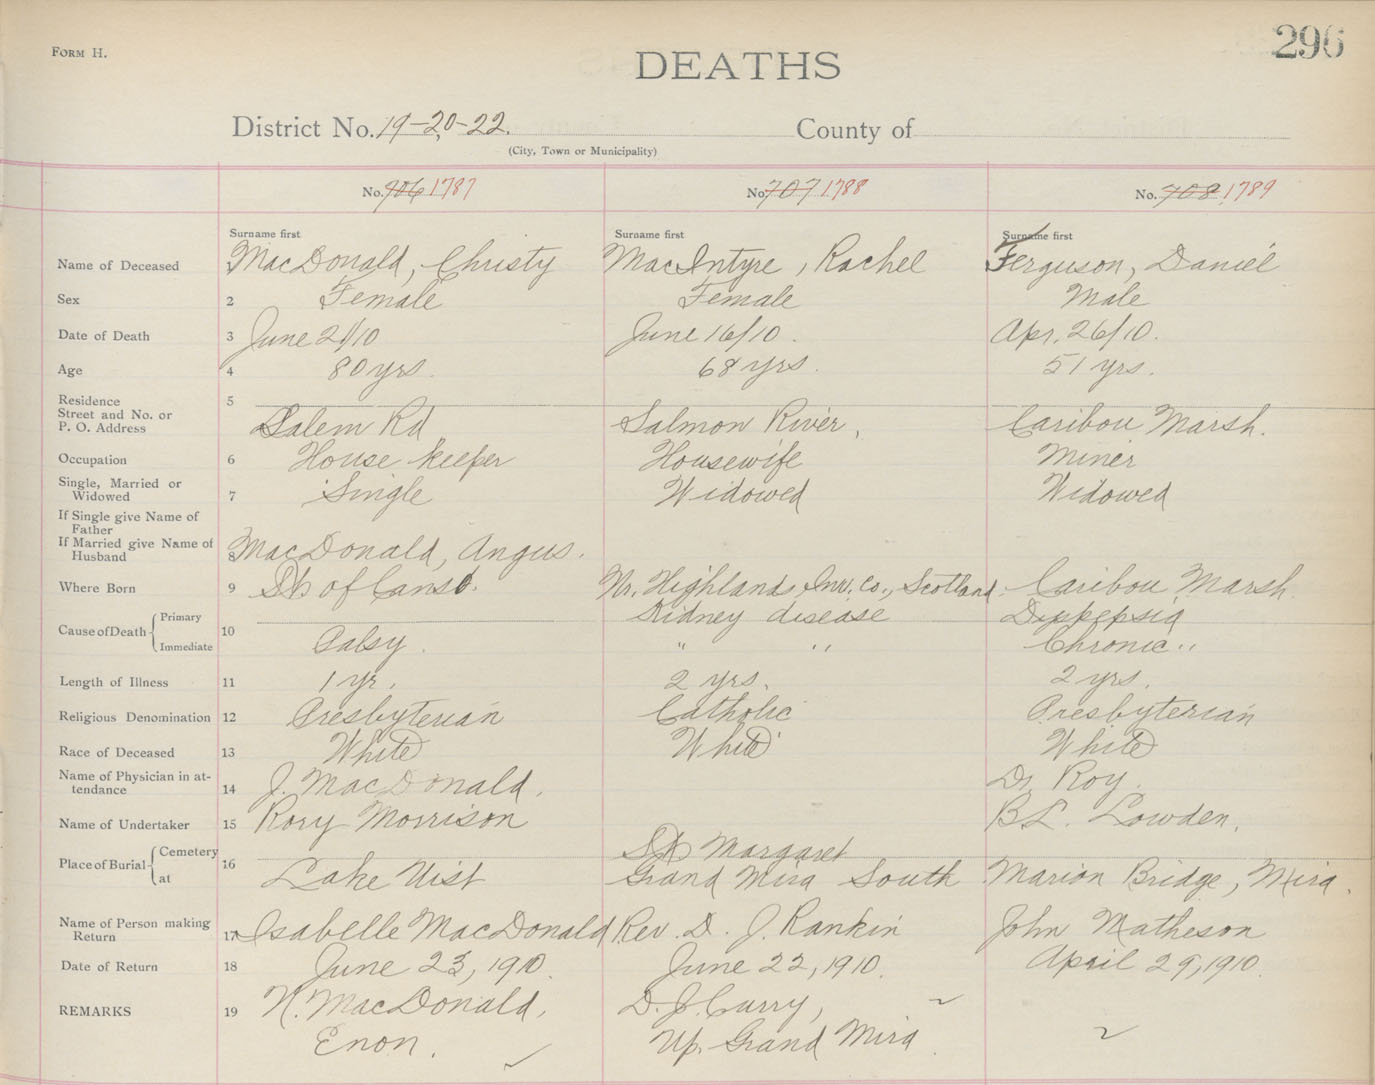 FORM H.
296
DEATHS
District No. 19-20-22. County of
(City, Town or Municipality)
No. 906 1787 No. 707 1788 No. 708 1789
Surname first Surname first Surname first
Name of Deceased MacDonald, Christy MacIntyre, Rachel Ferguson, Daniel
Sex 2 Female Female Male
Date of Death 3 June 21/10 June 16/10. Apr. 26/10.
Age 4 80 yrs. 68 yrs. 51 yrs.
Residence 5
Street and No. or
P. O. Address Salem Rd Salmon River, Caribou Marsh.
Occupation 6 House keeper Housewife Miner
Single, Married or
Widowed 7 Single Widowed Widowed
If Single give Name of
Father
If Married give Name of
Husband 8 MacDonald, Angus.
Where Born 9 St of Canso. Nr. Highlands Inv. Co., Scotland. Caribou Marsh.
Cause of Death Primary 10 Kidney disease Dispepsia
Immediate Palsy. " " Chronic "
Length of Illness 11 1 yr. 2 yrs. 2 yrs.
Religious Denomination 12 Presbyterian Catholic Presbyterian
Race of Deceased 13 White White White
Name of Physician in at-
tendance 14 J. MacDonald. Dr. Roy.
Name of Undertaker 15 Rory Morrison B.L. Lowden.
Place of Burial Cemetery 16 St Margaret
at Lake Uist Grand Mira South Marion Bridge, Mira.
Name of Person making
Return 17 Isabelle MacDonald Rev. D. J. Rankin John Matheson
Date of Return 18 June 23, 1910. June 22, 1910. April 29, 1910.
REMARKS 19 N. MacDonald, D. J. Curry,
Enon. Up. Grand Mira.